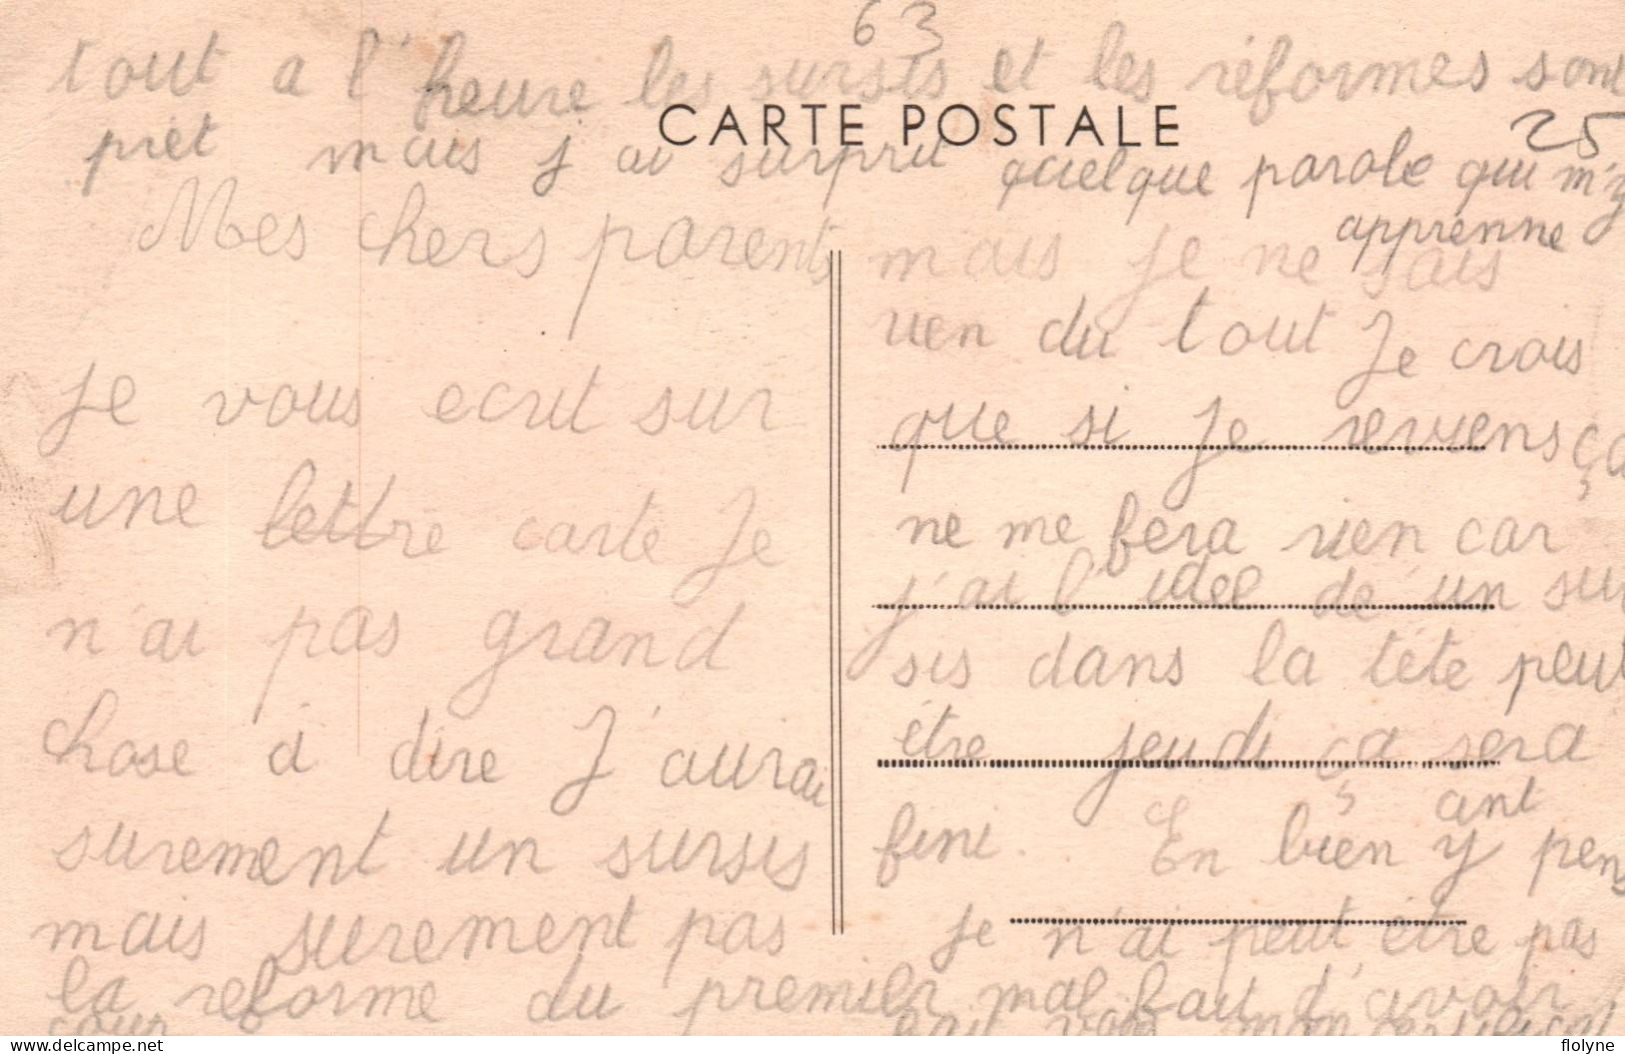 63
tout a l'heure les sursis et les réformes sont
CARTE POSTALE
25
prèt mais j ai surprit quelque parole qui m'y
apprenne
Mes chers parents
je vous ecrit sur
une lettre carte Je
n'ai pas grand
chose à dire J'aurai
surement un sursis
mais surement pas
la reforme du premier
cour
mais je ne sais
rien du tout Je crois
que si je reviens ça
ne me fera rien car
j'ai l'ideé de un sur
sis dans la tète peut
ètre jeudi ça sera
fini. En bien y pens
ant
je n'ai peut ètre pas
mal fait d'avoir
fait voir mon
flolyne